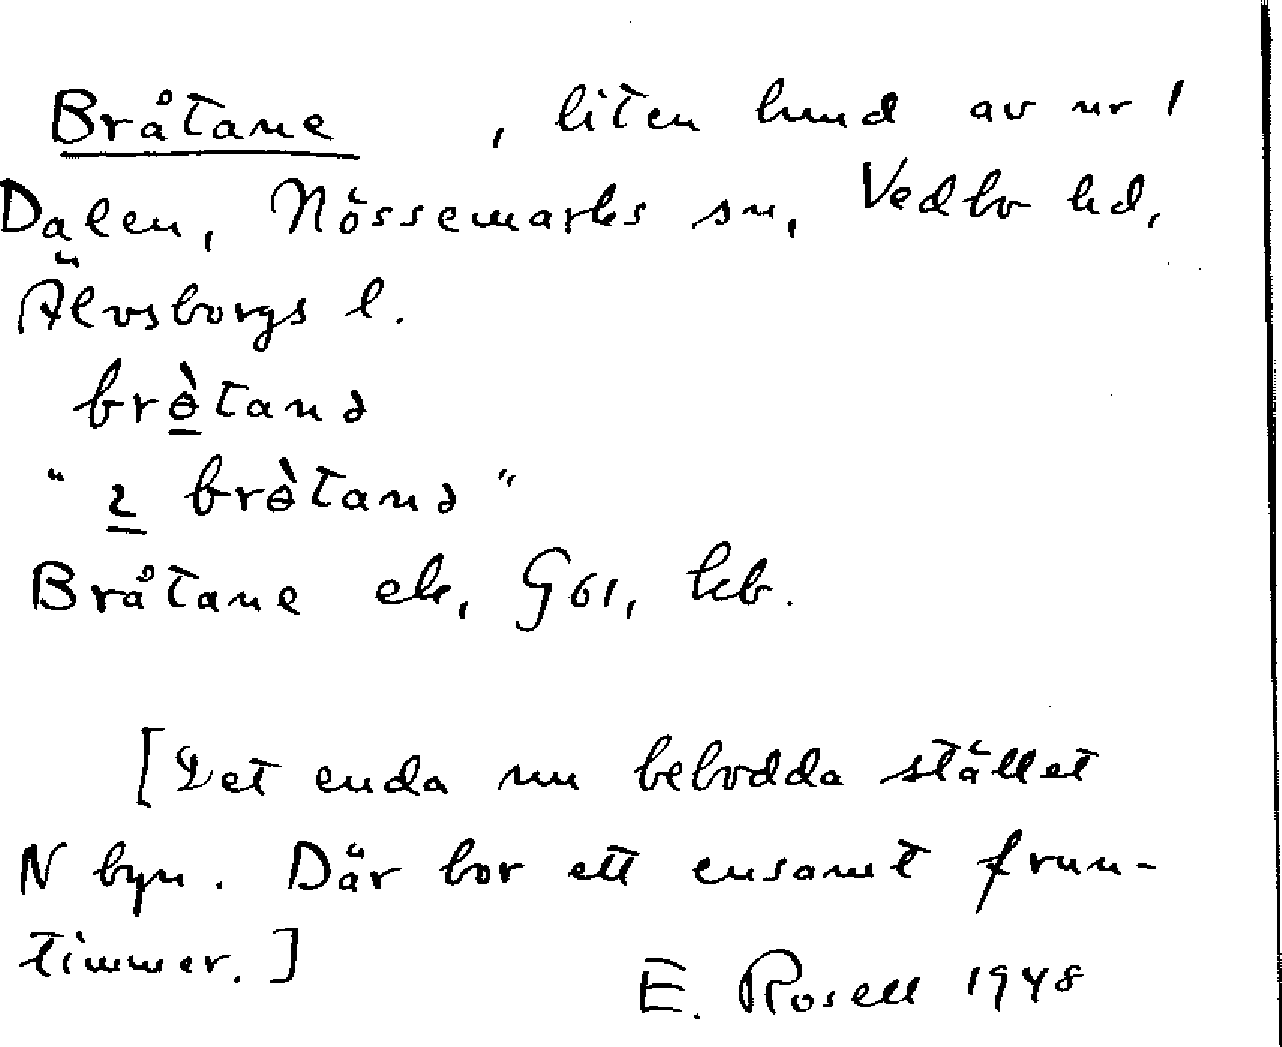 Bråtane , liten lund av nr 1
Dalen, Nössemarks sn, Vedbo hd,
Älvsborgs l.
brɵ̀tanə
"2 brɵ̀tanə"
Bråtane ek, G61, kb.
[Det enda nu bebodda stället
N byn. Där bor ett ensamt frun-
timmer.]
E. Rosell 1948